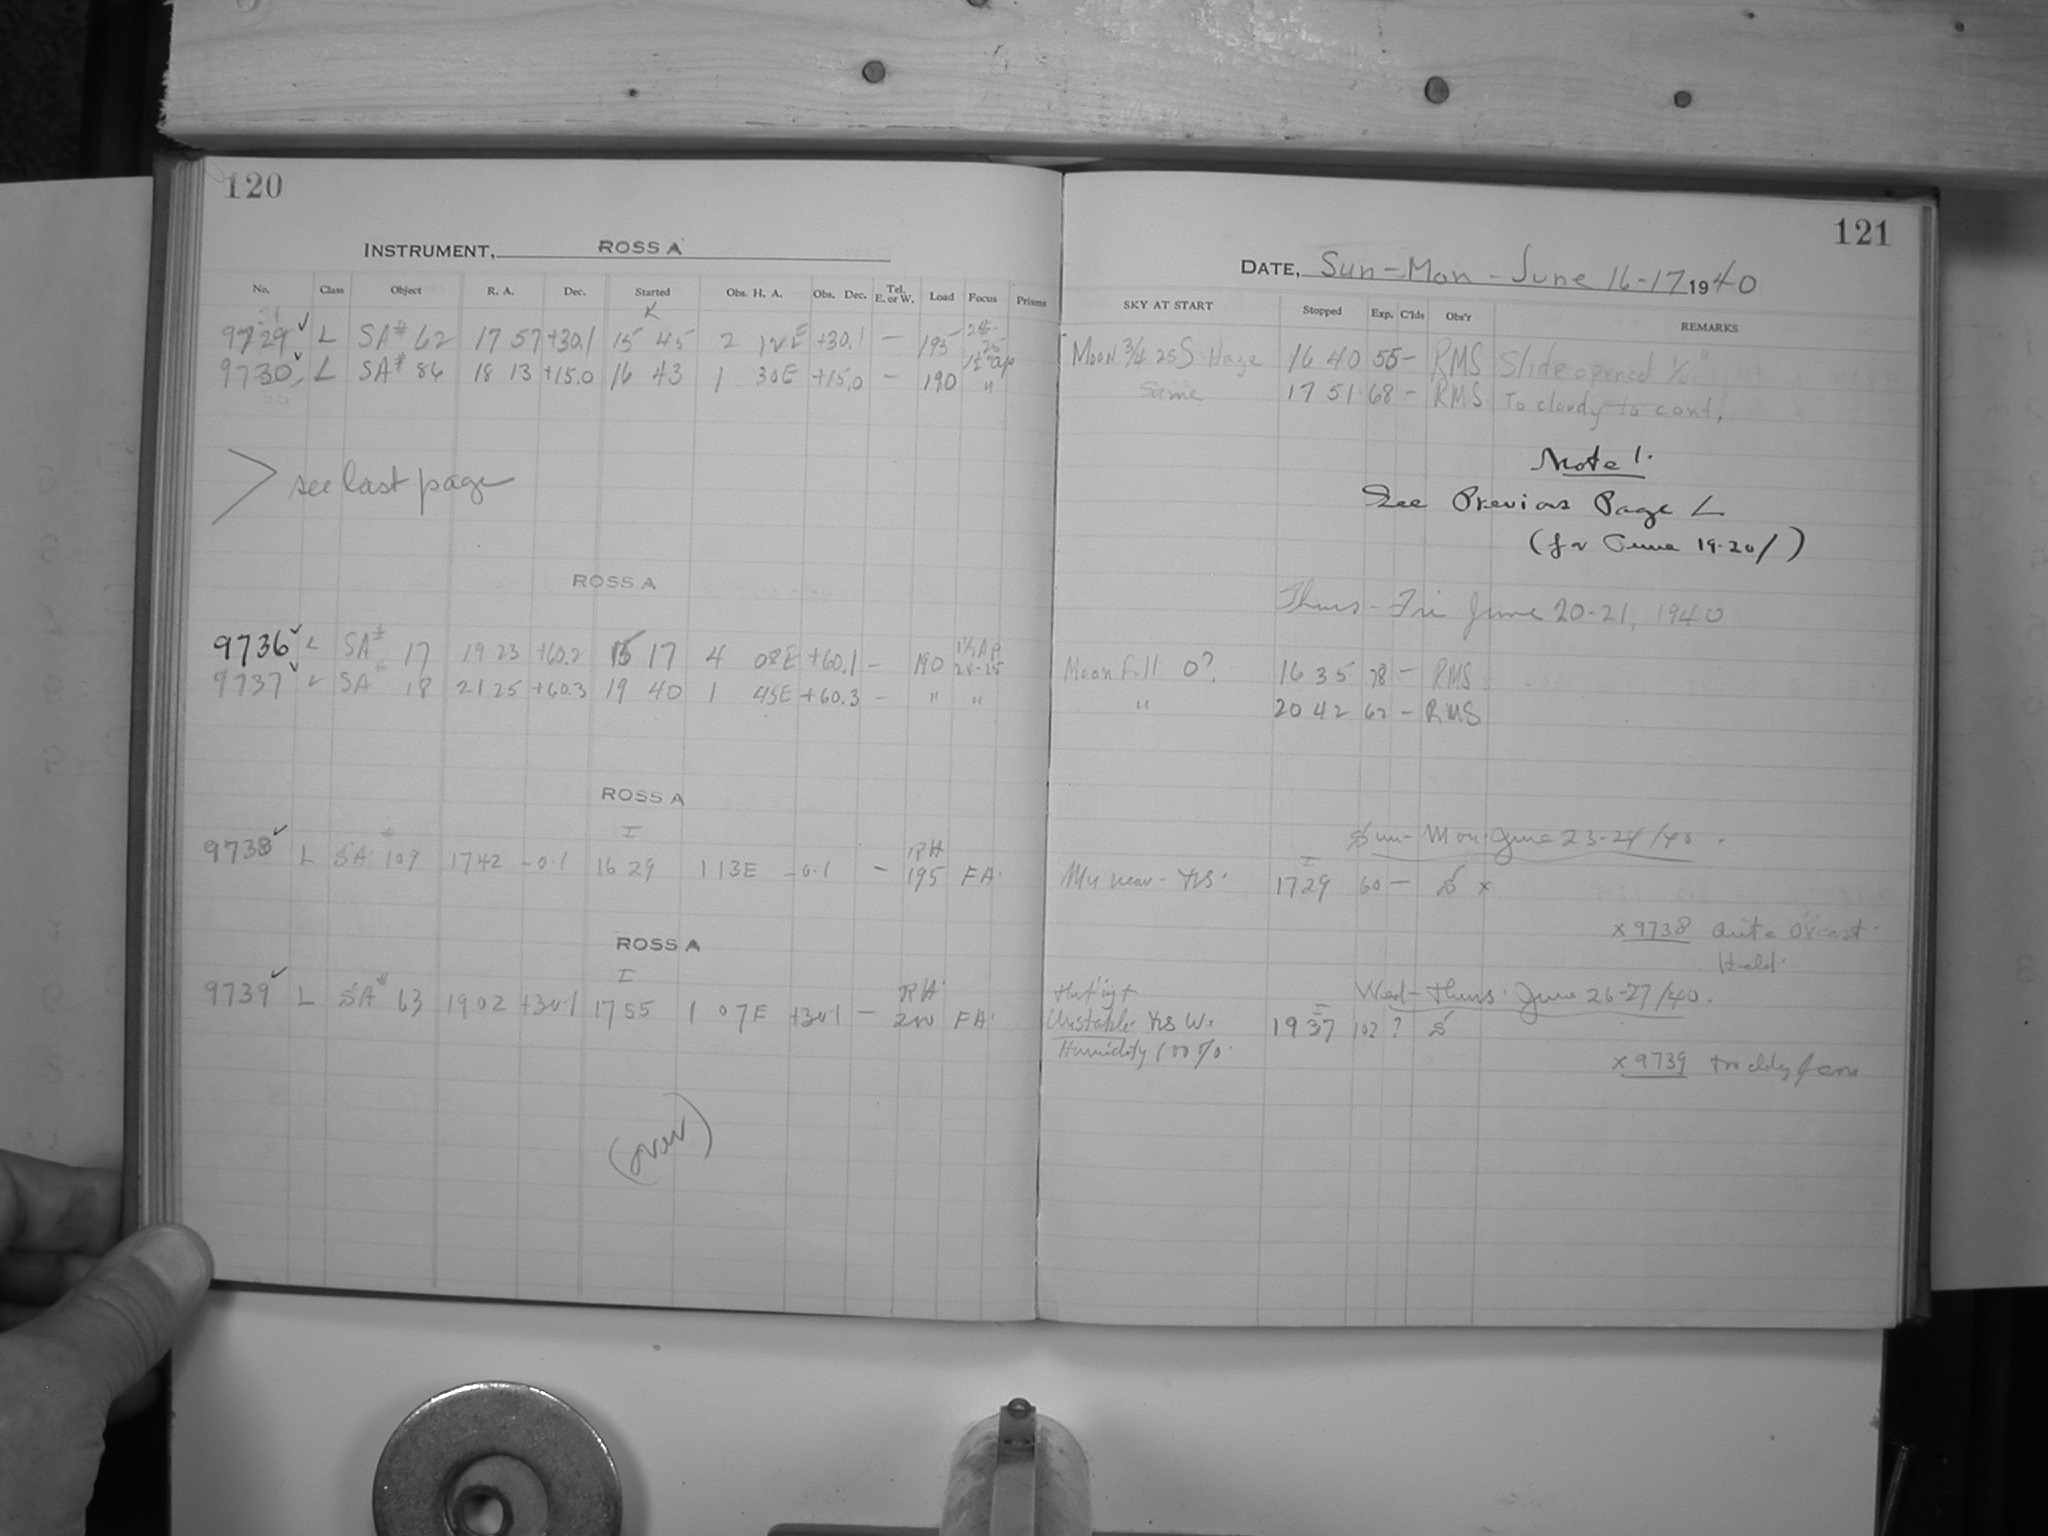 120
INSTRUMENT, ROSS A
No. Class Object R. A. Dec. Started Obs. H. A. Obs. Dec. Tel. E. or W. Load Focus Prisms
9729 L SA# 62 17 57 +30.1 15 45 2 12E +30.1 — 195
9730 L SA# 86 18 13 +15.0 16 43 1 30E +15.0 — 190 "
> see last page
ROSS A
9736 L SA# 17 19 23 +60.2 15 17 4 08E +60.1 — 190 24-25
9737 L SA# 18 21 25 +60.3 19 40 1 45E +60.3 — " "
ROSS A
9738 L SA# 109 17 42 -0.1 16 29 1 13E -0.1 — RH 195 FA
ROSS A
9739 L SA# 63 19 02 +30.1 17 55 1 07E +30.1 — RH 200 FA
(over)
121
DATE, Sun-Mon-June 16-17 1940
SKY AT START Stopped Exp. C'lds Obs'r REMARKS
Moon 3/4 Haze 16 40 55 — RMS Slide opened
Same 17 51 68 — RMS To cloudy to cont.
Note 1.
See Previous Page L
(for June 19-20/)
Thurs-Fri June 20-21, 1940
Moon Full 0? 16 35 78 — RMS
" 20 42 62 — RMS
Sun-Mon June 23-24/40.
17 29 60 — S x
x 9738 Quite
Wed-Thurs. June 26-27/40.
Unstable W.
19 37 102 ? S
Humidity 100%.
x 9739